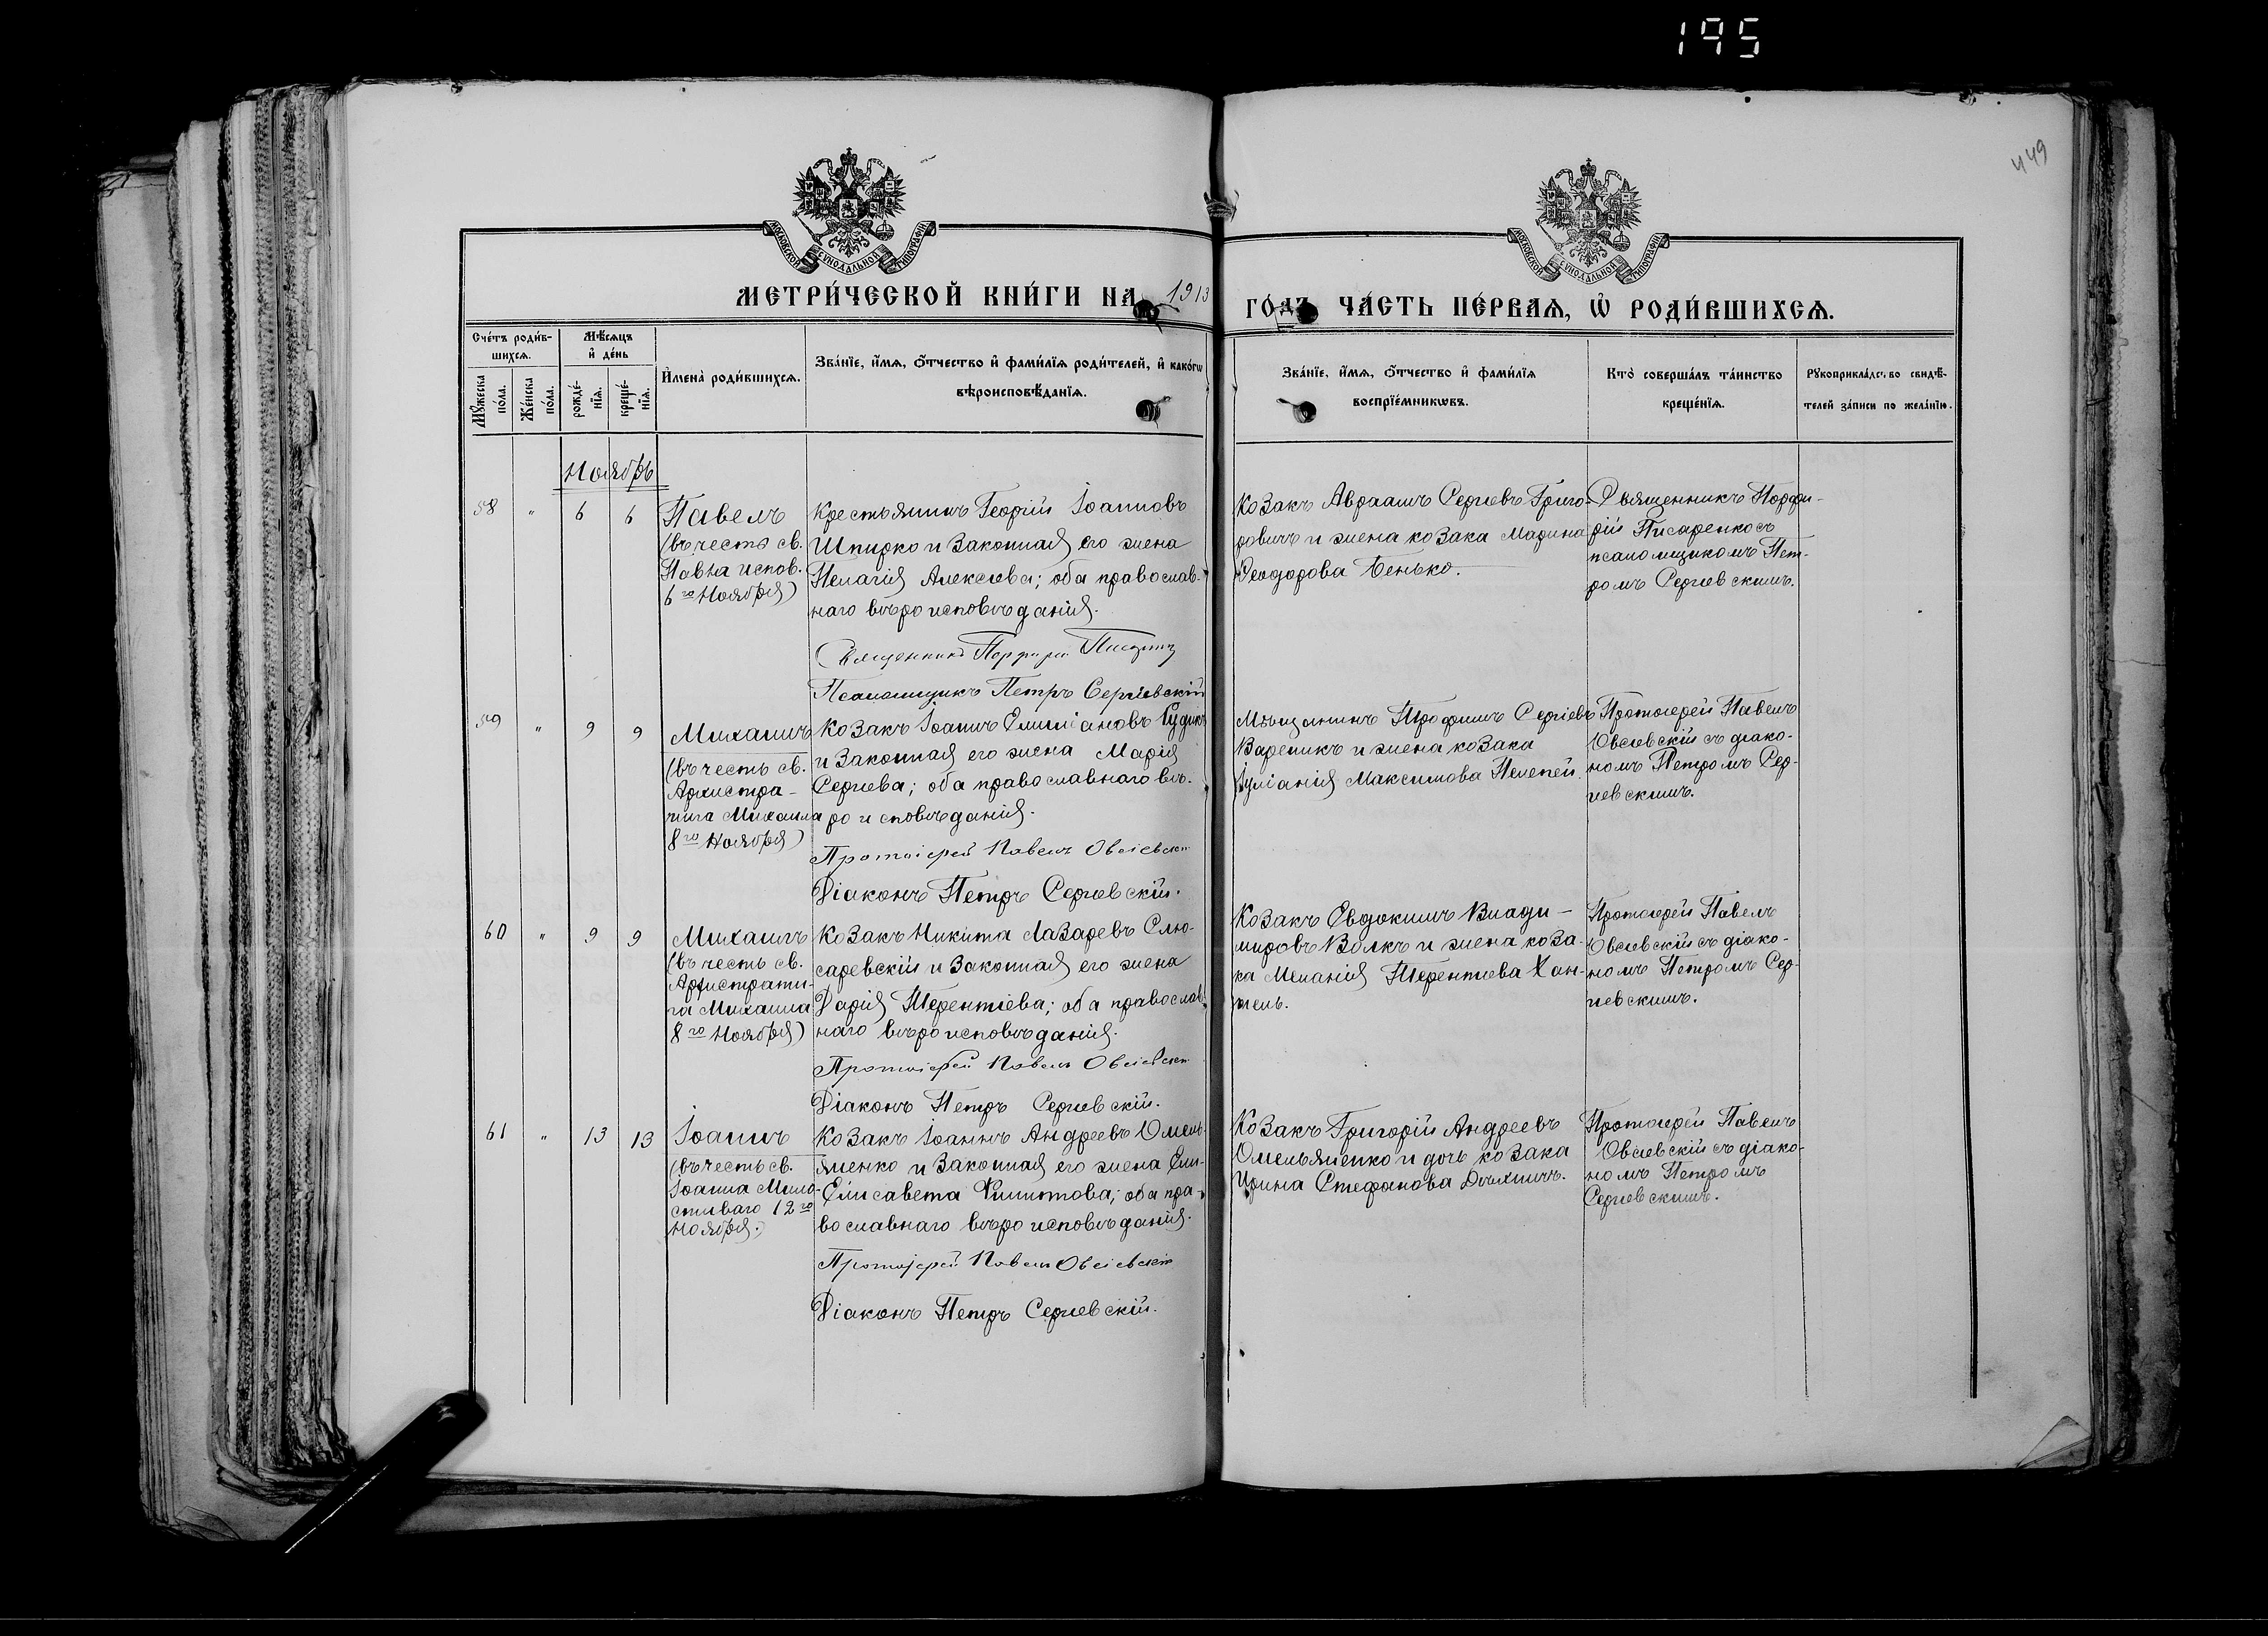 195
449
МОСКОВСКОЙ СѴНОДАЛЬНОЙ ТИПОГРАФІИ
МОСКОВСКОЙ СѴНОДАЛЬНОЙ ТИПОГРАФІИ
МЕТРИ́ЧЕСКОЙ КНИ́ГИ НА 1913 ГО́ДЪ ЧА́СТЬ ПЕ́РВАѦ, Ѽ РОДИ́ВШИХСѦ.
Сче́тъ роди́в-
шихсѧ.
Мꙋжеска по́ла.
Же́нска по́ла.
Мѣ́сѧцъ
и҆ де́нь
рожде́-
нїѧ.
креще́-
нїѧ.
И҆мена̀ роди́вшихсѧ.
Зва́нїе, и҆́мѧ, ѻ҆́тчество и҆ фами́лїѧ роди́телей, и҆ како́гѡ
вѣроисповѣ́данїѧ.
Зва́нїе, и҆́мѧ, ѻ҆́тчество и҆ фами́лїѧ
воспрїе́мникѡвъ.
Кто̀ соверша́лъ та́инство
креще́нїѧ.
Рꙋкоприкла́дство свидѣ́-
телей за́писи по жела́нїю.
Ноябрь
58 " 6 6
Павелъ
(въ честь св.
Павла испов.
6го Ноября)
Крестьянинъ Георгій Іоанновъ
Шпирко и законная его жена
Пелагія Алексіева; оба православ-
наго вѣроисповѣданія.
Священникъ Порфирій
Псаломщикъ Петръ Сергіевскій
Козакъ Авраамъ Сергіевъ Григо-
ровичъ и жена козака Марина
Ѳеодорова Бенько.
Священникъ Порфи-
рій Писаренко съ
псаломщикомъ Пет-
ромъ Сергіевскимъ.
59 " 9 9
Михаилъ
(въ честь св.
Архистра-
тига Михаила
8го Ноября)
Козакъ Іоаннъ Емиліановъ Гудимъ
и законная его жена Марія
Сергіева; оба православнаго вѣ-
роисповѣданія.
Протоіерей Павелъ Овсіевскій
Діаконъ Петръ Сергіевскій.
Мѣщанинъ Трофимъ Сергіевъ
Вареникъ и жена козака
Іуліанія Максимова Пелепей.
Протоіерей Павелъ
Овсіевскій съ діако-
номъ Петромъ Сер-
гіевскимъ.
60 " 9 9
Михаилъ
(въ честь св.
Архистрати-
га Михаила
8го Ноября)
Козакъ Никита Лазаревъ Слю-
саревскій и законная его жена
Дарія Терентіева; оба православ-
наго вѣроисповѣданія.
Протоіерей Павелъ Овсіевскій
Діаконъ Петръ Сергіевскій.
Козакъ Евдокимъ Влади-
мировъ Волкъ и жена коза-
ка Меланія Терентіева Хан-
жель.
Протоіерей Павелъ
Овсіевскій съ діако-
номъ Петромъ Сер-
гіевскимъ.
61 " 13 13
Іоаннъ
(въ честь св.
Іоанна Мило-
стиваго 12го
Ноября.)
Козакъ Іоаннъ Андреевъ Омель-
яненко и законная его жена Ели-
Елисавета Филиппова; оба пра-
вославнаго вѣроисповѣданія.
Протоіерей Павелъ Овсіевскій
Діаконъ Петръ Сергіевскій.
Козакъ Григорій Андреевъ
Омельяненко и дочь козака
Ирина Стефанова
Протоіерей Павелъ
Овсіевскій съ діако-
номъ Петромъ
Сергіевскимъ.